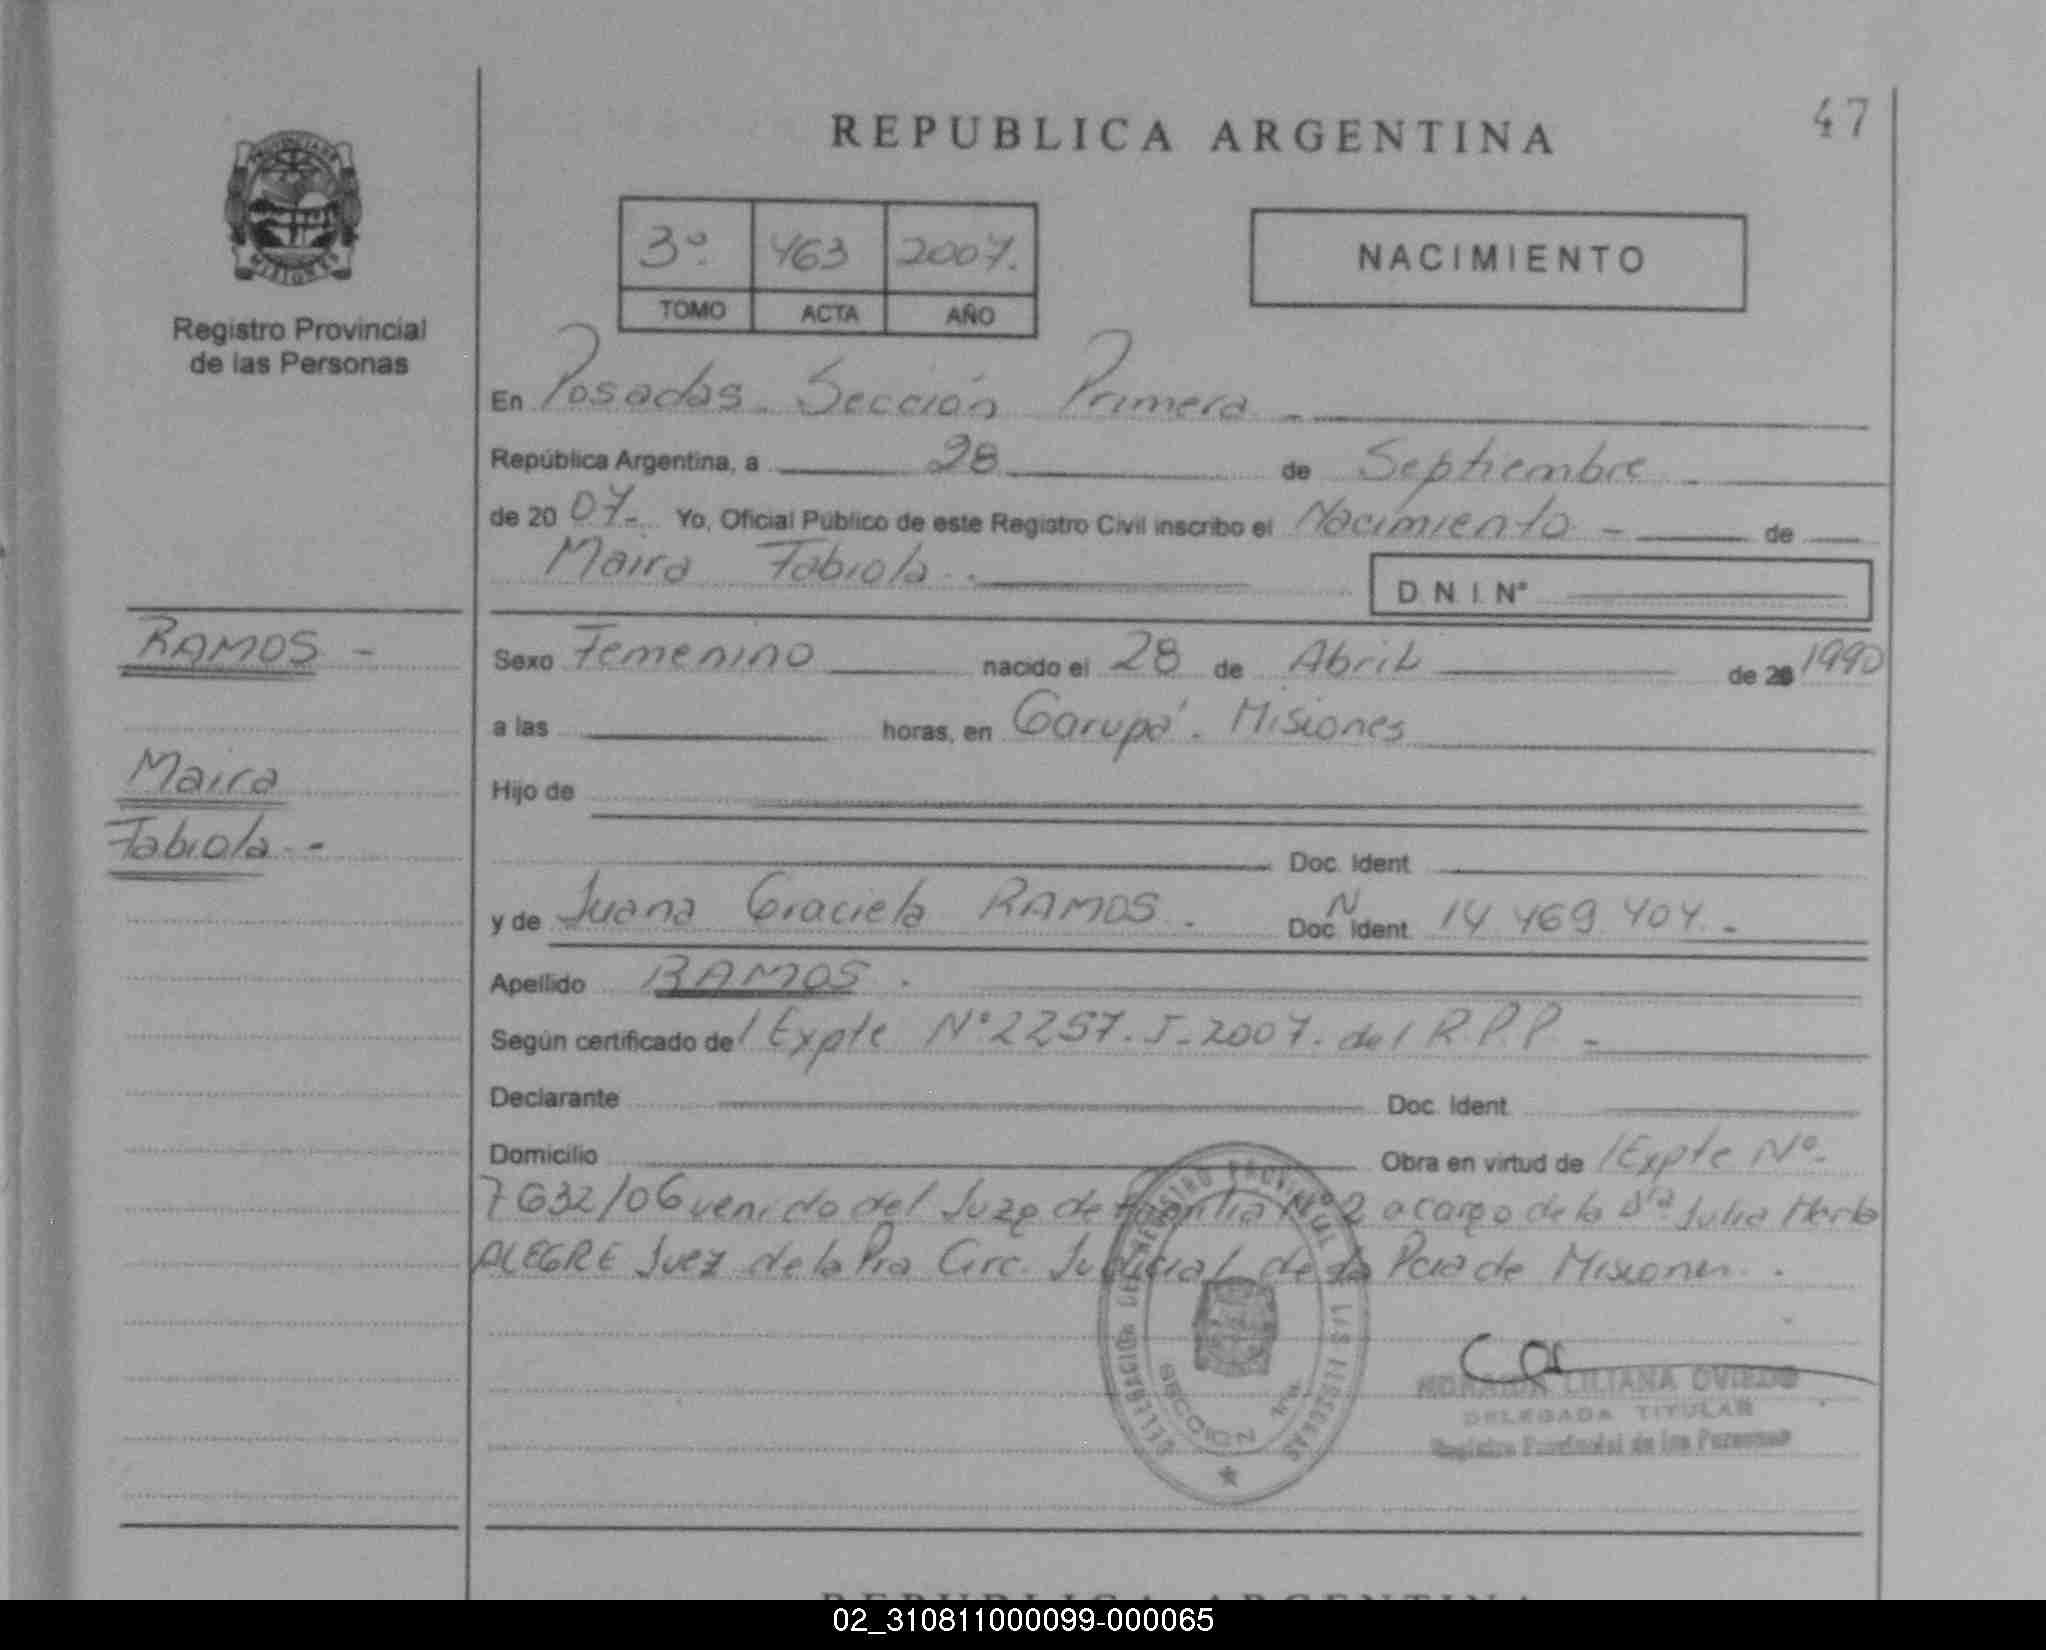 47
REPUBLICA ARGENTINA
PROVINCIA DE
MISIONES
Registro Provincial
de las Personas
3º 463 2007.
TOMO ACTA AÑO
NACIMIENTO
En Posadas. Sección Primera
República Argentina, a 28 de Septiembre
de 20 07. Yo, Oficial Público de este Registro Civil inscribo el Nacimiento - de
Maira Fabiola.
D.N.I. Nº
RAMOS -
Maira
Fabiola -
Sexo Femenino nacido el 28 de Abril de 1990
a las horas, en Garupá. Misiones
Hijo de
Doc. Ident
y de Juana Graciela RAMOS. Doc. N Ident. 14 469 404. -
Apellido RAMOS.
Según certificado del Expte Nº 2257. I-2007. del R.P.P -
Declarante Doc. Ident
Domicilio Obra en virtud de l Expte Nº
7632/06 venido del Juzg de Familia Nº 2 a cargo de la Dra Julia
ALEGRE Juez de la Pra Circ. Judicial de la Pcia de Misiones.
DELEGACION DEL REGISTRO PROVINCIAL DE LAS PERSONAS
SECCION 1ra.
LILIANA OVIEDO
DELEGADA TITULAR
Registro Provincial de las Personas
REPUBLICA ARGENTINA
02_310811000099-000065